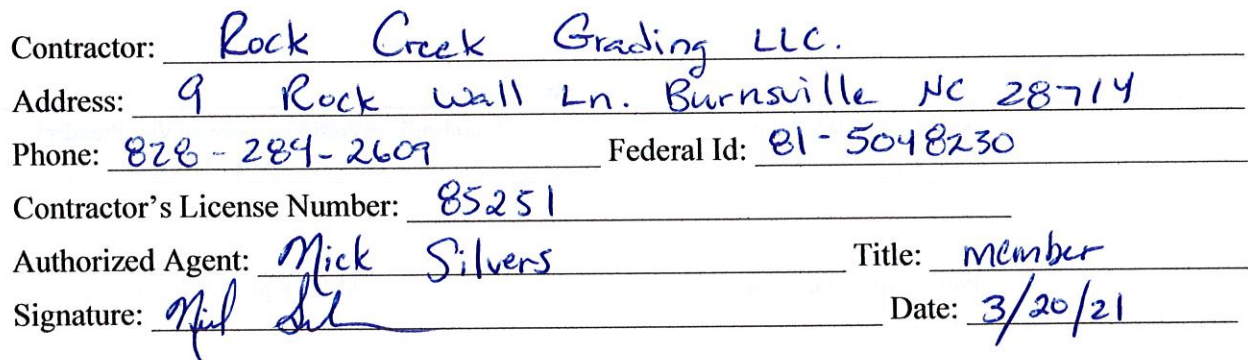 Contractor: Rock Creek Grading LLC.
Address: 9 Rock Wall Ln. Burnsville NC 28714
Phone: 828-284-2609 Federal Id: 81-5048230
Contractor's License Number: 85251
Authorized Agent: Mick Silvers Title: member
Signature: Date: 3/20/21